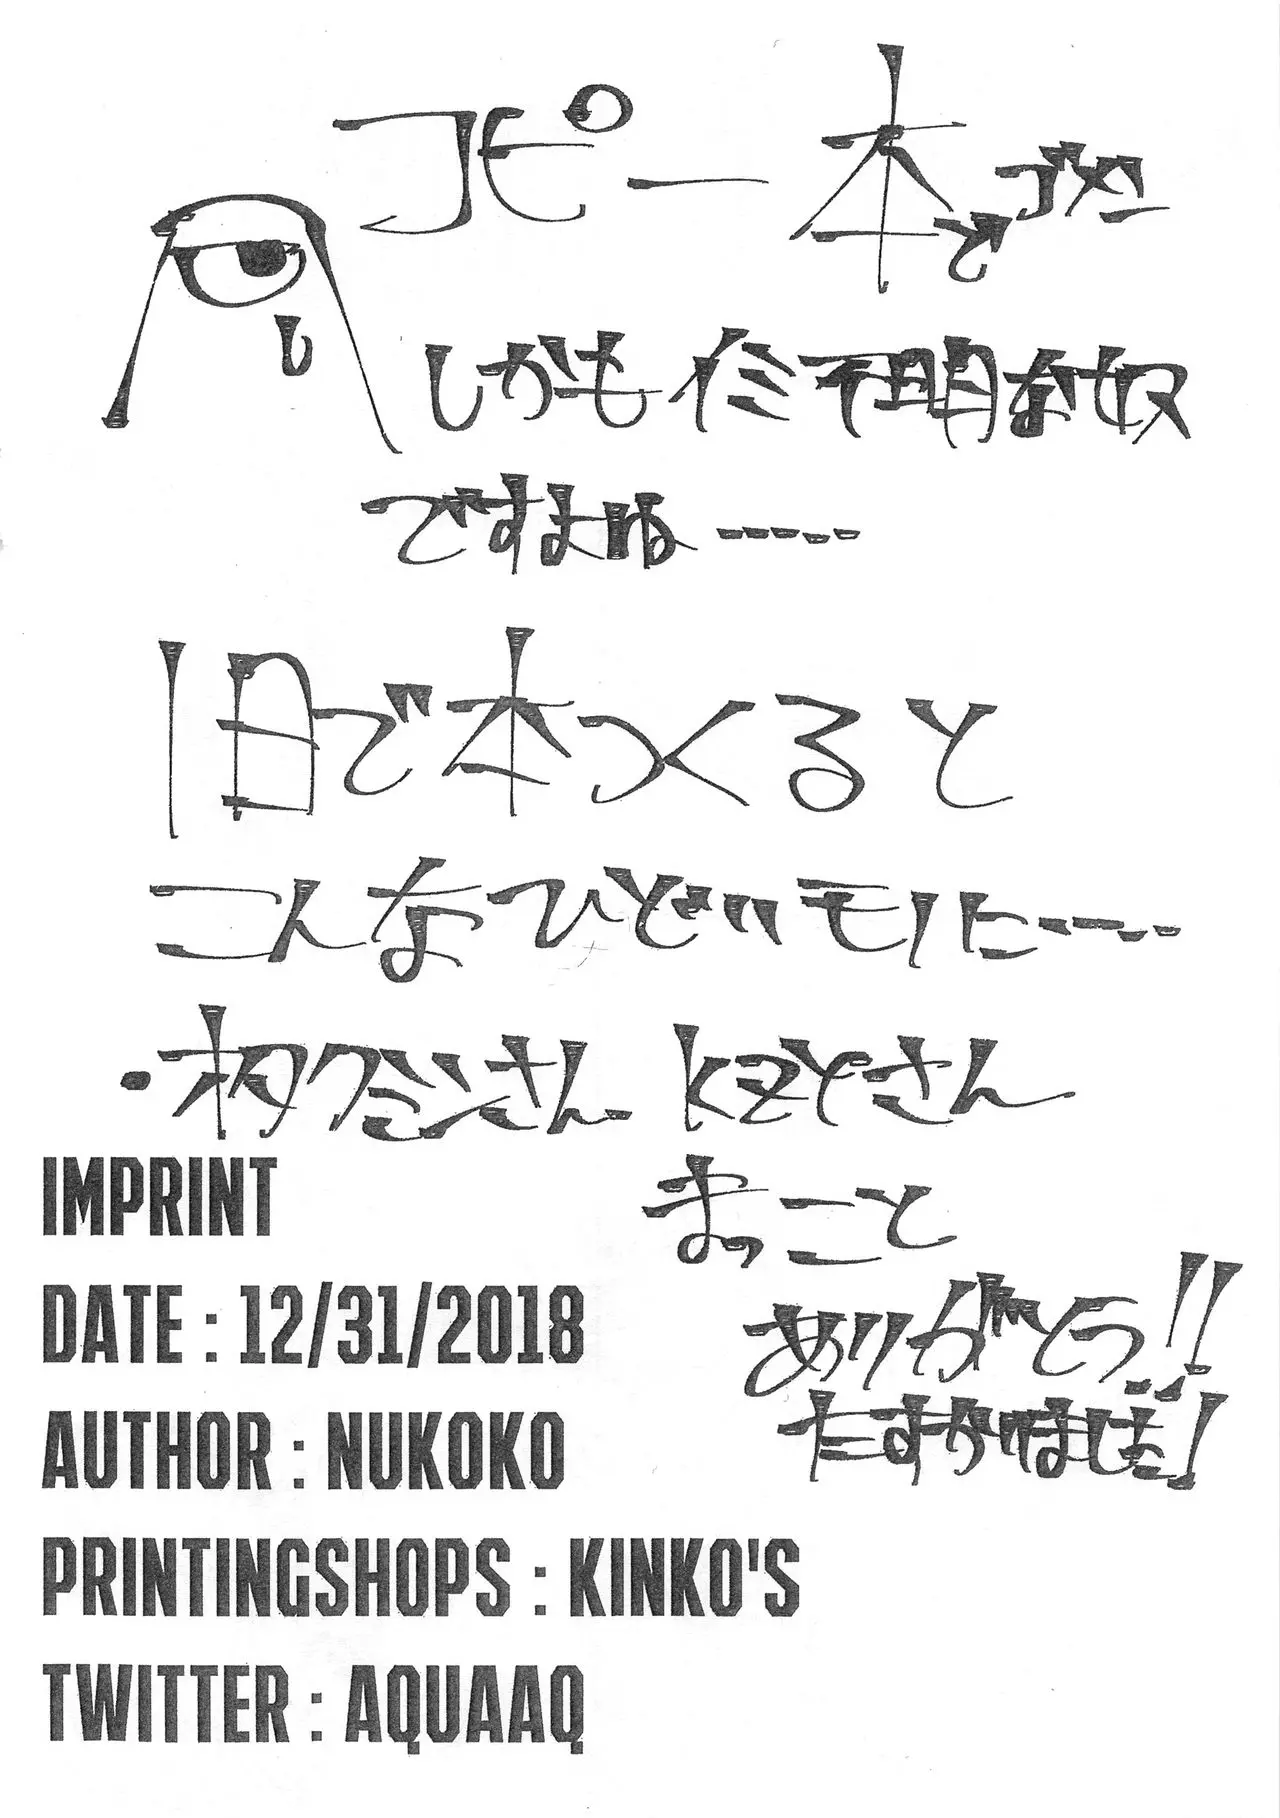 コピー本でゴメン
しかもイミ不明な奴
ですよね-----
1日で本つくると
こんなひどいモノに-----
・さん kzyさん
まっこと
ありがとう!!
たすかりました!
IMPRINT
DATE : 12/31/2018
AUTHOR : NUKOKO
PRINTINGSHOPS : KINKO'S
TWITTER : AQUAAQ